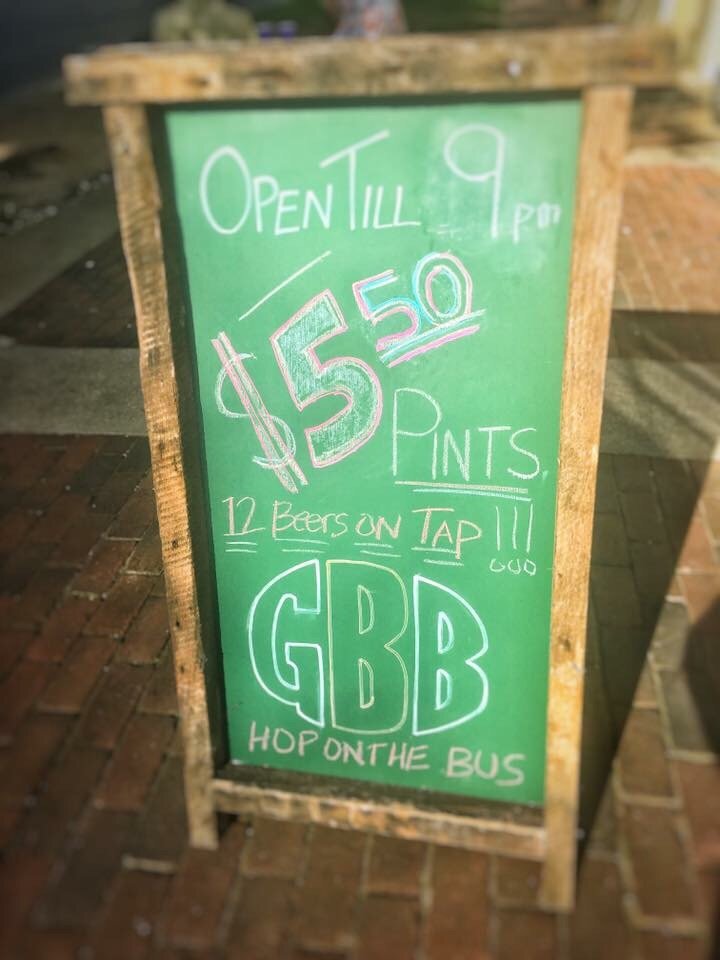 OPEN TILL 9pm
$5.50
PINTS
12 Beers ON TAP !!!
GBB
HOP ON THE BUS